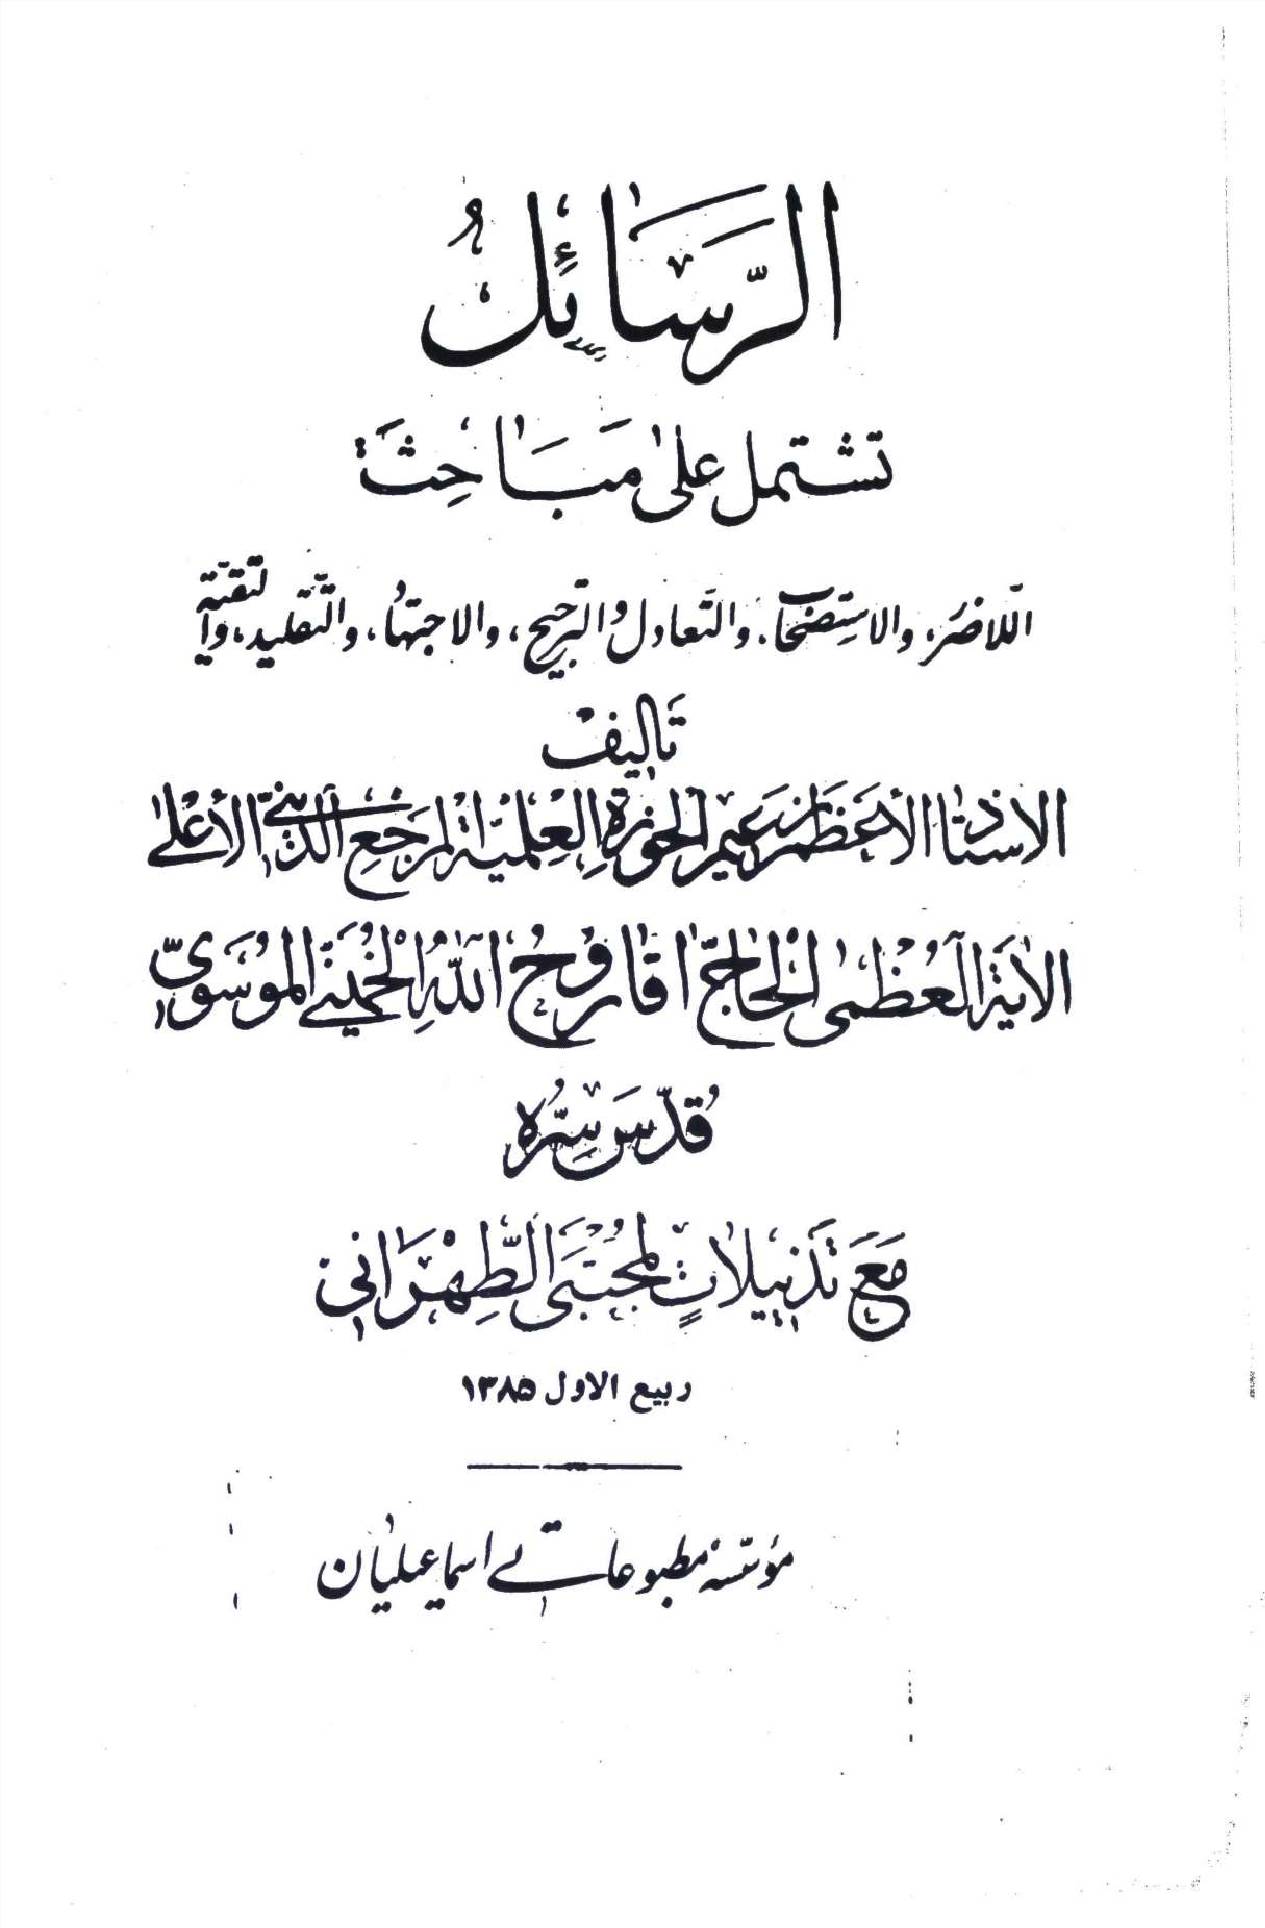 الرَّسَائِلُ
تشتمل على مَبَاحِثَ
اللاضرر، والاستصحاب، والتعادل والترجيح، والاجتهاد، والتقليد، والتقية
تَأليف
الاستاذ الأعظم زعيم الحوزة العلمية المرجع الديني الأعلى
الآية العظمى الحاج اقا روح الله الخميني الموسوي
قُدِّسَ سِرُّه
مَعَ تذييلاتٍ لمجتبى الطهراني
ربيع الاول ۱۳۸۵
مؤسسه مطبوعاتي اسماعيليان